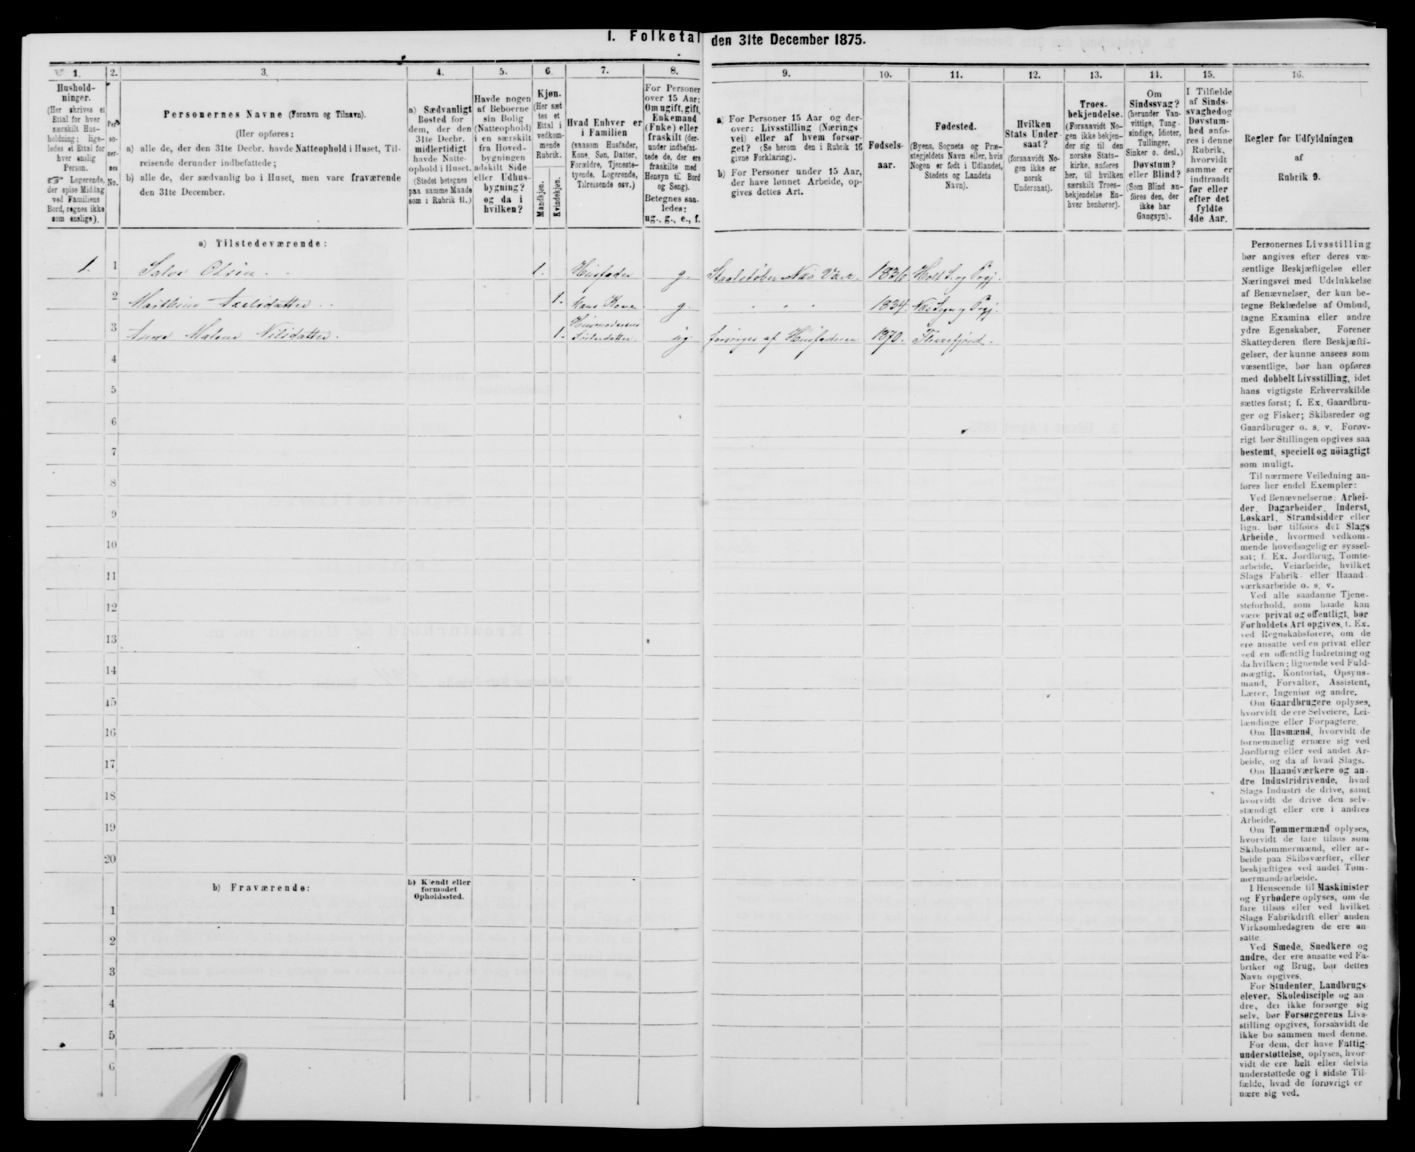 I. Folketal den 31te December 1875.
1. 2. 3. 4. 5. 6. 7. 8. 9. 10. 11. 12. 13. 14. 15. 16.
Husholdninger.
(Her skrives et
Ettal for hver
særskilt Hus-
holdning; lige-
ledes et Ettal for
hver enslig
Person.
☞ Logerende,
der spise Middag
ved Familiens
Bord, regnes ikke
som enslige).
Per-
so-
ner-
nes
No.
Personernes Navne (Fornavn og Tilnavn).
(Her opføres:
a) alle de, der den 31te Decbr. havde Natteophold i Huset, Til-
reisende derunder indbefattede;
b) alle de, der sædvanlig bo i Huset, men vare fraværende
den 31te December.
a) Sædvanligt
Bosted for
dem, der den
31te Decbr.
midlertidigt
havde Natte-
ophold i Huset.
(Stedet betegnes
paa samme Maade
som i Rubrik 11.)
Havde nogen
af Beboerne
sin Bolig
(Natteophold)
i en særskilt
fra Hoved-
bygningen
adskilt Side
eller Udhus-
bygning?
og da i
hvilken?
Kjøn.
(Her sæt
tes et
Ettal i
vedkom-
mende
Rubrik.
Mandkjøn.
Kvindekjøn.
Hvad Enhver er
i Familien
(saasom Husfader,
Kone, Søn, Datter,
Forældre, Tjeneste-
tyende, Logerende,
Tilreisende osv.)
For Personer
over 15 Aar:
Om ugift, gift,
Enkemand
(Enke) eller
fraskilt (der-
under indbefat-
tede de, der ere
fraskilte med
Hensyn til Bord
og Seng).
Betegnes saa-
ledes:
ug., g., e., f.
a) For Personer 15 Aar og der-
over: Livsstilling (Nærings
vei) eller af hvem forsør-
get? (Se herom den i Rubrik 16
givne Forklaring).
b) For Personer under 15 Aar,
der have lønnet Arbeide, op-
gives dettes Art.
Fødsels-
aar.
Fødested.
(Byens, Sognets og Præ-
stegjeldets Navn eller, hvis
Nogen er født i Udlandet,
Stedets og Landets
Navn).
Hvilken
Stats Under-
saat?
(foraavidt No-
gen ikke er
norsk
Undersaat).
Troes-
bekjendelse.
(Forsaavidt No-
gen ikke bekjen-
der sig til den
norske Stats-
kirke, anføres
her, til hvilken
særskilt Troes-
bekjendelse En-
hver henhører).
Om
Sindssvag?
(herunder Van-
vittige, Tung-
sindige, Idioter,
Tullinger,
Sinker o. desl.)
Døvstum?
eller Blind?
(Som Blind an-
føres den, der
ikke har
Gangsyn).
I Tilfælde
af Sinds-
svaghed og
Døvstum-
hed anfø-
res i denne
Rubrik,
hvorvidt
samme er
indtraadt
før eller
efter det
fyldte
4de Aar.
Regler før Udfyldningen
af
Rubrik 9.
a) Tilstedeværende:
1. 1 Salve Olsen 1. Husfader g. 1836
2 Axelsdatter 1. Kone g. " " " 1834
3 Anne Malene Nilsdatter 1. ug forsørges af Husfaderen 1870
4
5
6
7
8
9
10
11
12
13
14
15
16
17
18
19
20
b) Fraværende:
b) Kjendt eller
formodet
Opholdssted.
1
2
3
4
5
6
Personernes Livsstilling
bør angives efter deres væ-
sentlige Beskjæftigelse eller
Næringsvei med Udelukkelse
af Benævnelser, der kun be-
tegne Beklædelse af Ombud,
tagne Examina eller andre
ydre Egenskaber. Forener
Skatteyderen flere Beskjæfti-
gelser, der kunne ansees som
væsentlige, bør han opføres
med dobbelt Livsstilling, idet
hans vigtigste Erhvervskilde
sættes først; f. Ex. Gaardbru-
ger og Fisker; Skibsreder og
Gaardbruger o. s. v. Forøv-
rigt bør Stillingen opgives saa
bestemt, specielt og nöiagtigt
som muligt.
Til nærmere Veiledning an-
føres her endel Exempler:
Ved Benævnelserne: Arbei-
der, Dagarbeider, Inderst,
Løskarl, Strandsidder eller
lign. bør tilføies det Slags
Arbeide, hvormed vedkom-
mende hovedsagelig er syssel-
sat; f. Ex. Jordbrug, Tomte-
arbeide, Veiarbeide, hvilket
Slags Fabrik- eller Haand-
værksarbeide o. s. v.
Ved alle saadanne Tjene-
steforhold, som baade kan
være privat og offentligt, bør
Forholdets Art opgives, f. Ex.
ved Regnskabsførere, om de
ere ansatte ved en privat eller
ved en offentlig Indretning og
da hvilken; lignende ved Fuld-
mægtig, Kontorist, Opsyns-
mand, Forvalter, Assistent,
Lærer, Ingeniør og andre.
Om Gaardbrugere oplyses,
hvorvidt de ere Selveiere, Lei-
lændinge eller Forpagtere.
Om Husmænd, hvorvidt de
fornemmelig ernære sig ved
Jordbrug eller ved andet Ar-
beide, og da af hvad Slags.
Om Haandværkere og an-
dre Industridrivende, hvad
Slags Industri de drive, samt
hvorvidt de drive den selv-
stændigt eller ere i andres
Arbeide.
Om Tømmermænd oplyses,
hvorvidt de fare tilsøs som
Skibstømmermænd, eller ar-
beide paa Skibsværfter, eller
beskjæftiges ved andet Tøm-
mermandsarbeide.
I Henseende til Maskinister
og Fyrbødere oplyses, om de
fare tilsøs eller ved hvilket
Slags Fabrikdrift eller anden
Virksomhedsgren de ere an-
satte.
Ved Smede, Snedkere og
andre, der ere ansatte ved Fa-
briker og Brug, bør dettes
Navn opgives.
For Studenter, Landbrugs-
elever, Skoledisciple og an
dre, der ikke forsørge sig
selv, bør Forsørgerens Livs-
stilling opgives, forsaavidt de
ikke bo sammen med denne.
For dem, der have Fattig-
understøttelse, oplyses, hvor-
vidt de ere helt eller delvis
understøttede og i sidste Til-
fælde, hvad de forøvrigt er
nære sig ved.